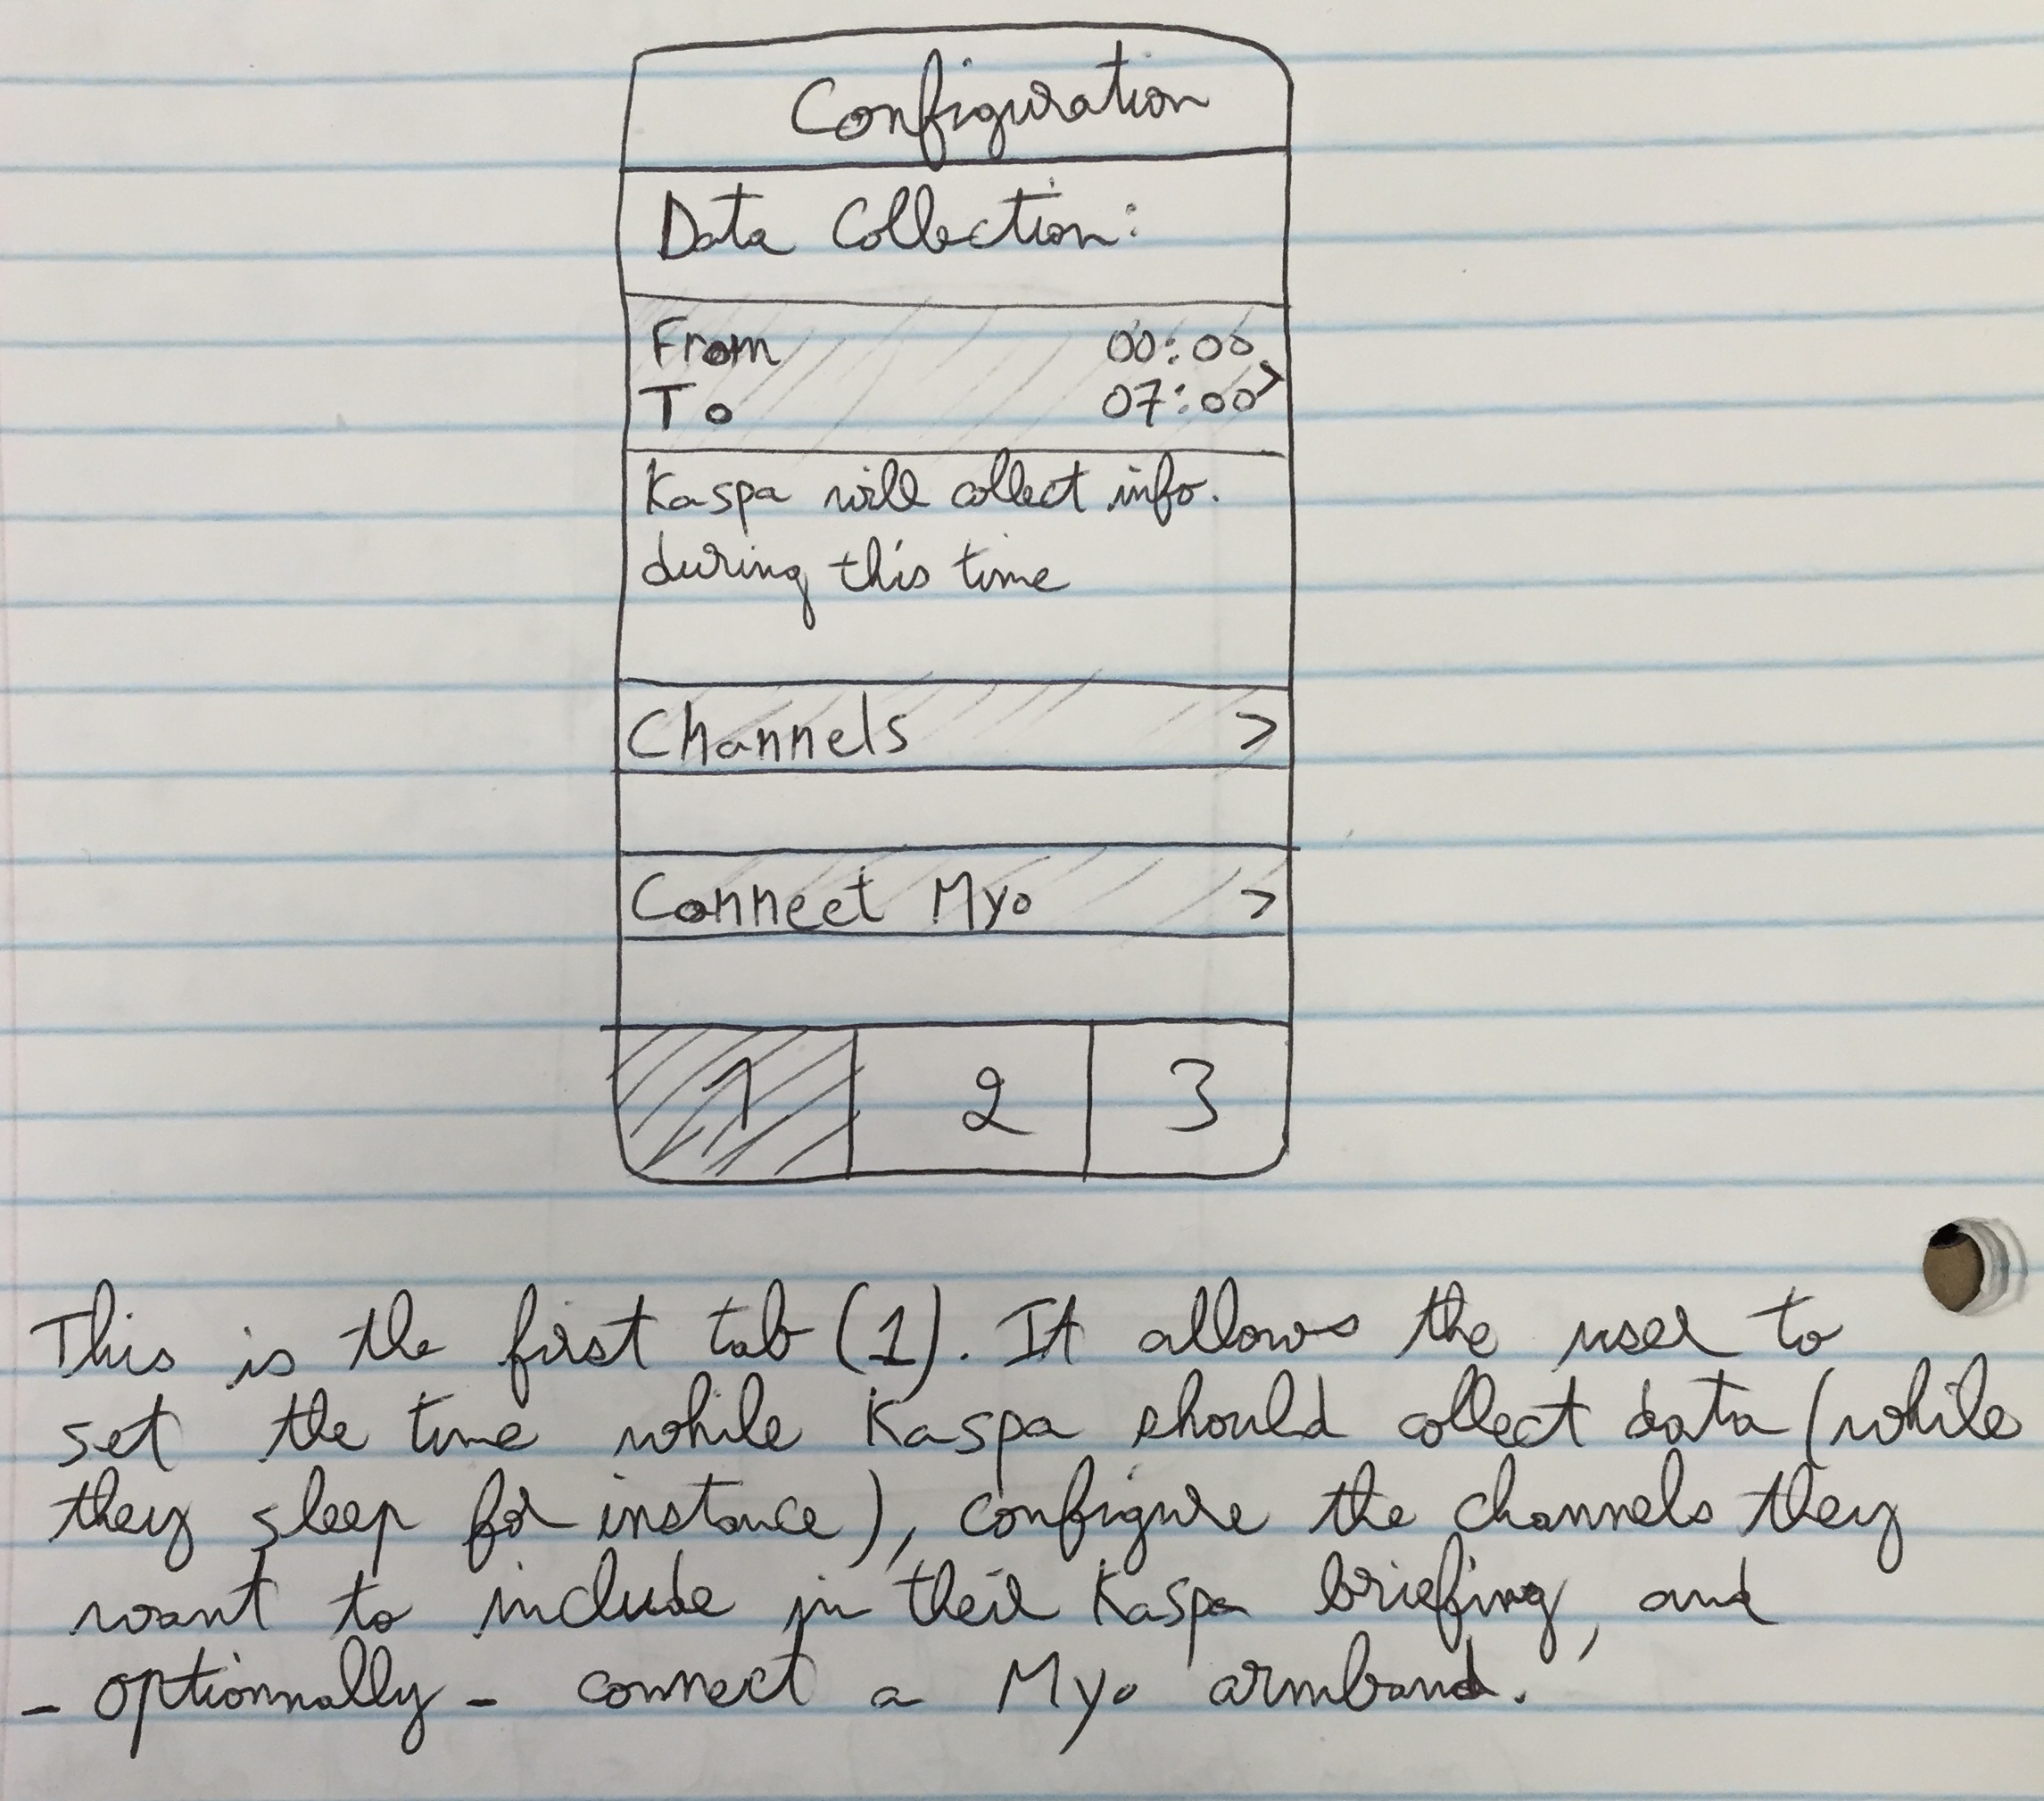 Configuration
Data Collection:
From 00:00
To 07:00 >
Kaspa will collect info.
during this time
Channels >
Connect Myo >
1 2 3
This is the first tab (1). It allows the user to
set the time while Kaspa should collect data (while
they sleep for instance), configure the channels they
want to include in their Kaspa briefing, and
- optionnally - connect a Myo armband.